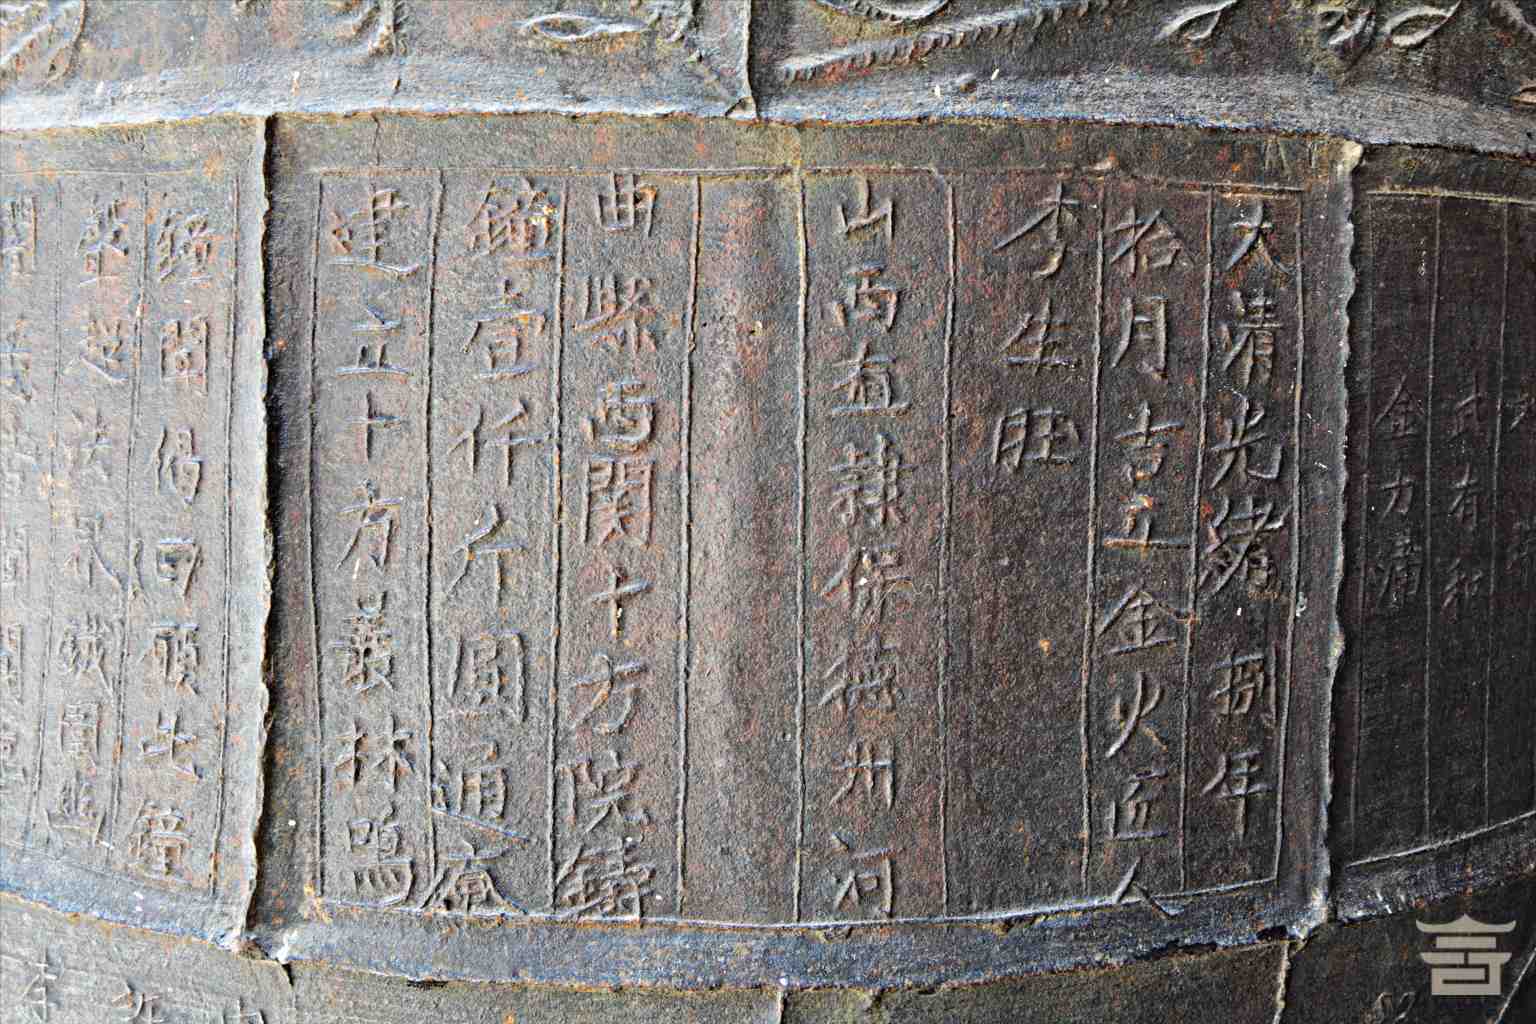 式有和
金力
大清光緒捌年
拾月吉立金火匠人
李生旺
山西直隸保德州河
曲縣西關十方院鑄
鐘壹仟斤圓通寮
建立十方叢林鳴
鐘聞偈曰願此鐘
聲超法界鐵圍幽
闇悉皆